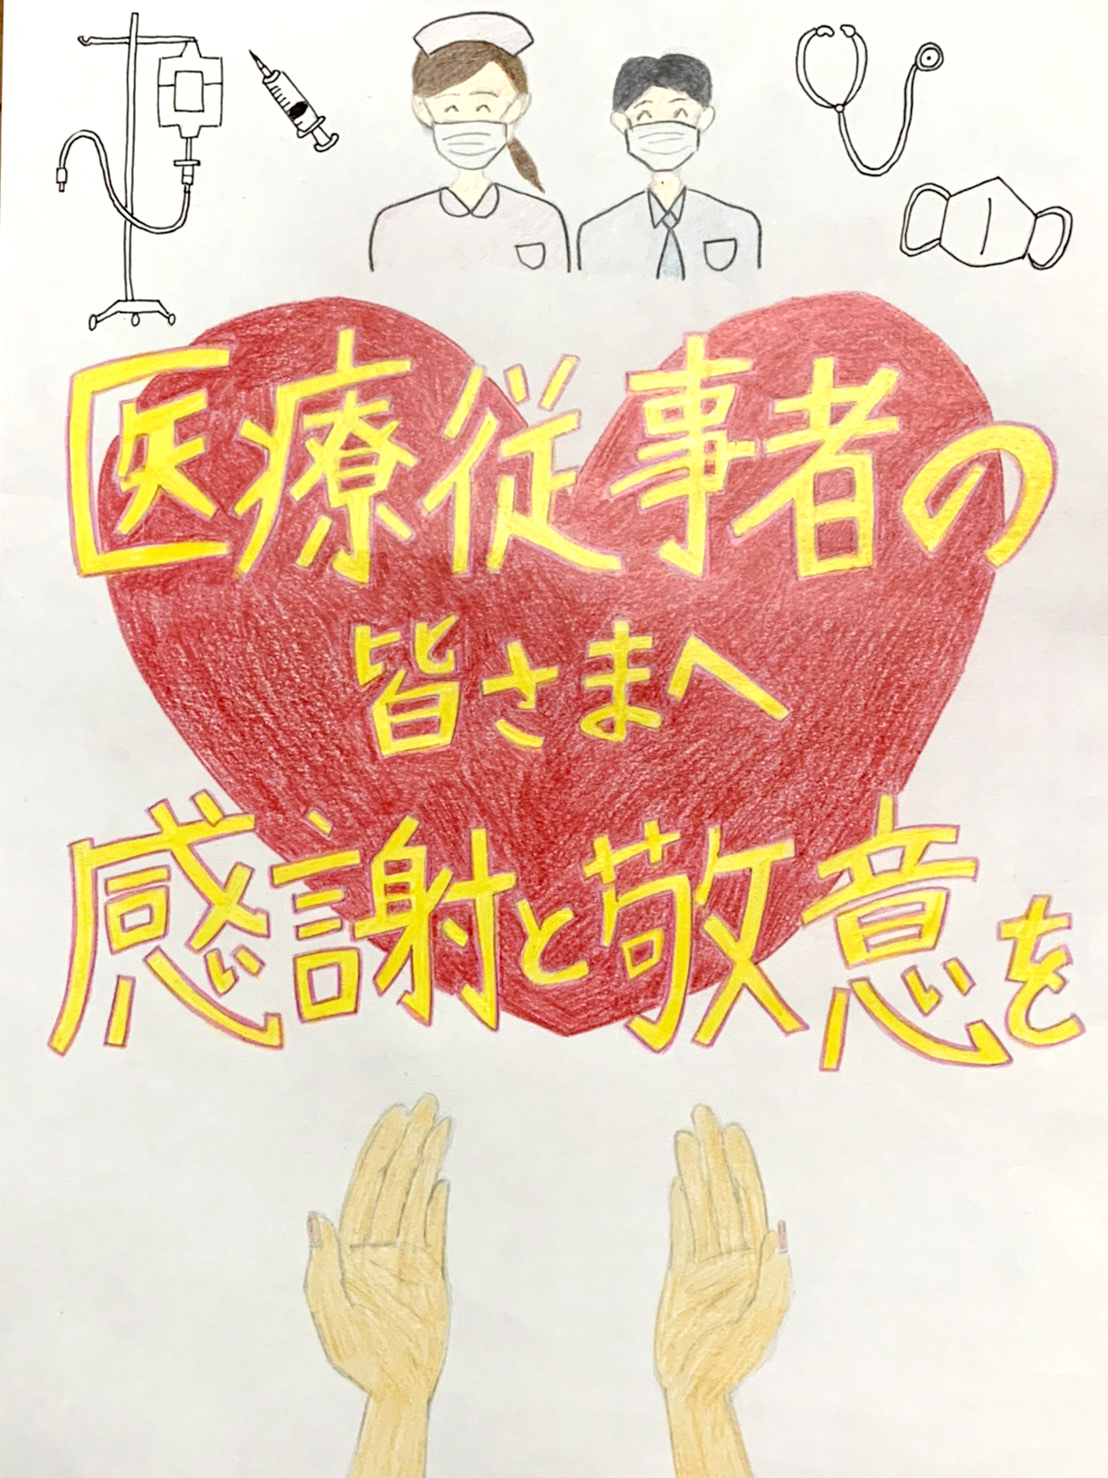 医療従事者の
皆さまへ
感謝と敬意を